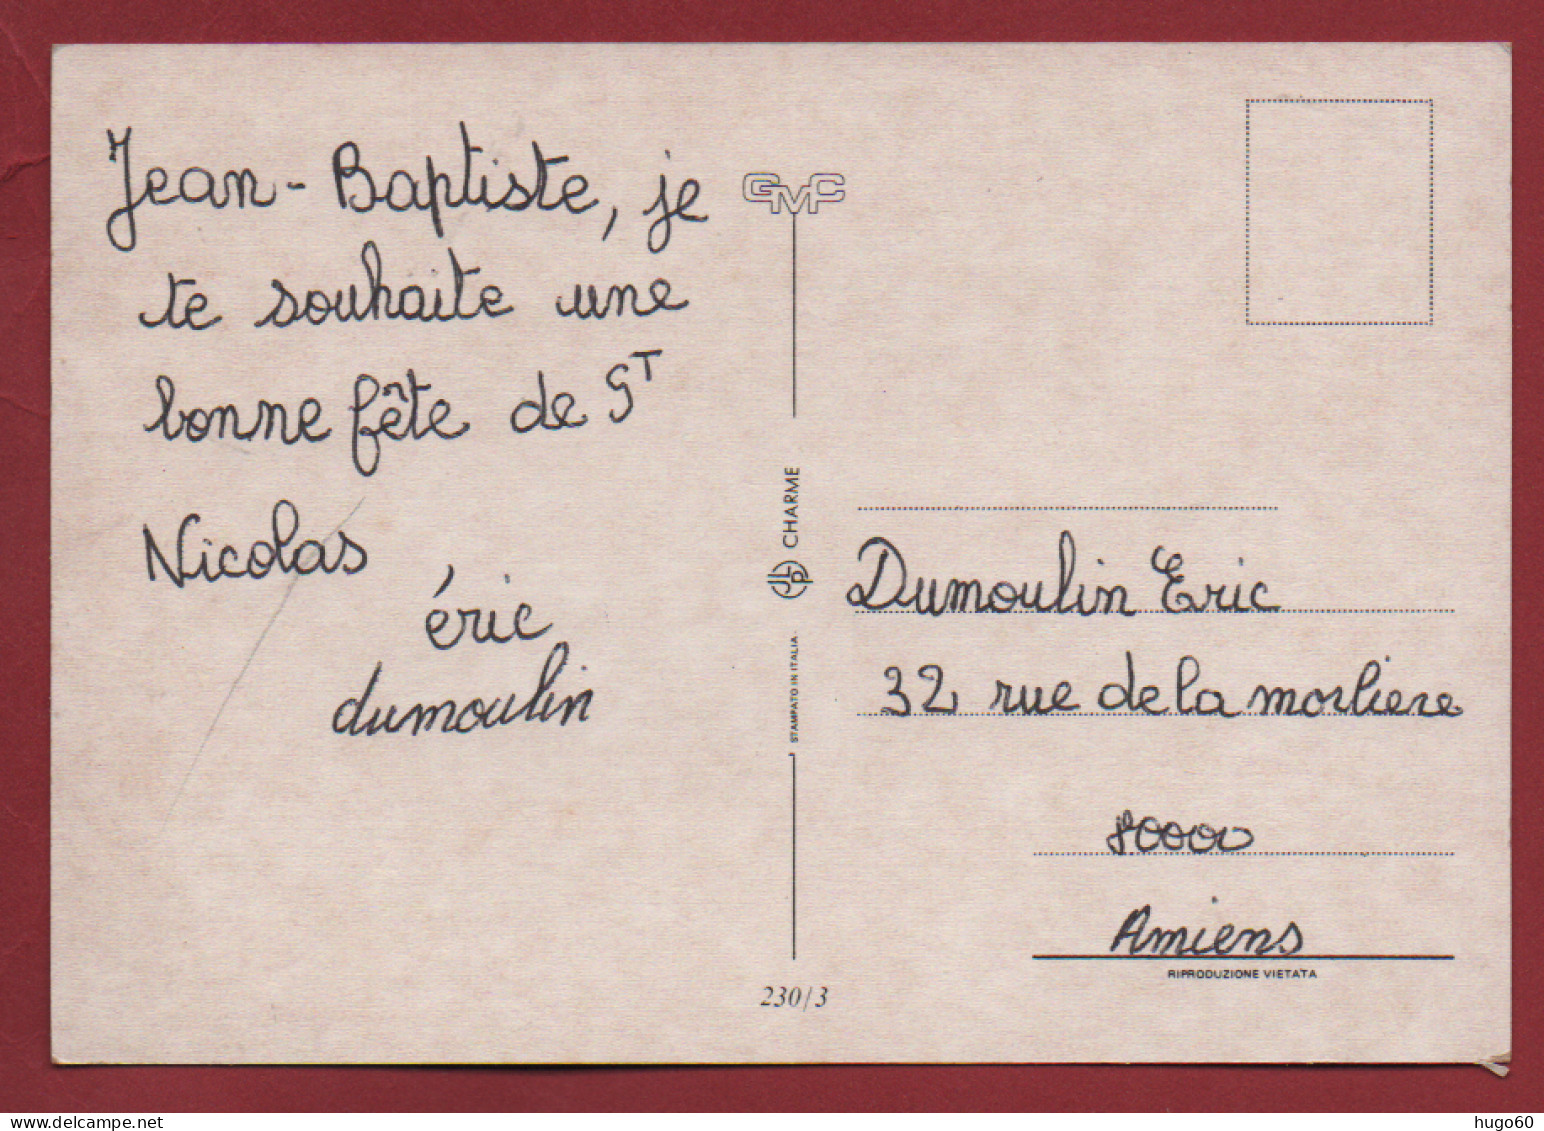 Jean-Baptiste, je
te souhaite une
bonne fête de Sᵀ
Nicolas,
éric
dumoulin
GMC
CHARME
STAMPATO IN ITALIA
230/3
Dumoulin Eric
32 rue de la morliere
80000
Amiens
RIPRODUZIONE VIETATA
hugo60